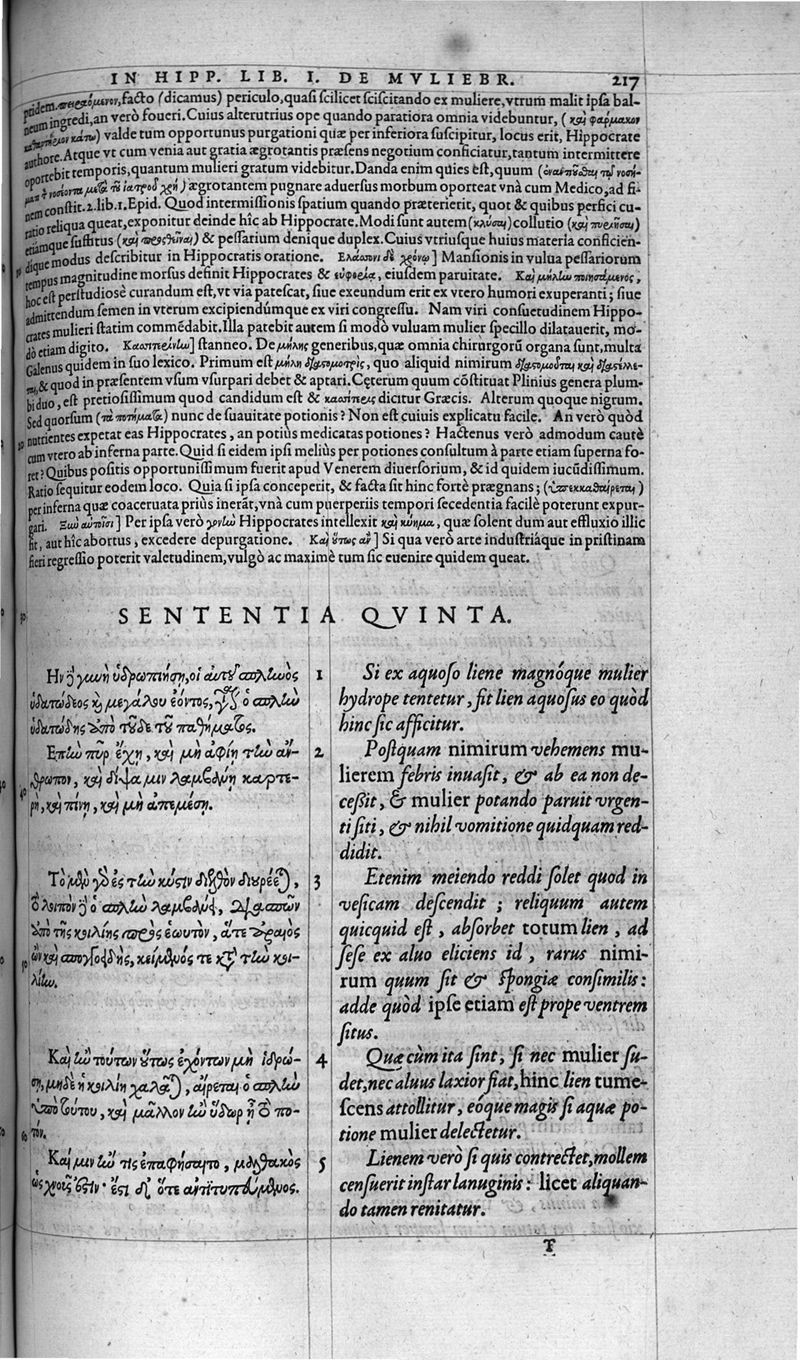 IN HIPP. LIB. I. DE MVLIEBR. 217
pridem facto (dicamus) periculo, quasi scilicet sciscitando ex muliere, vtrum malit ipsa bal-
neum ingredi, an verò foueri. Cuius alterutrius ope quando paratiora omnia videbuntur, (καὶ φάρμακον
κάτω) valde tum opportunus purgationi quæ per inferiora suscipitur, locus erit, Hippocrate
authore. Atque vt cum venia aut gratia ægrotantis præsens negotium conficiatur, tantum intermittere
oportebit temporis, quantum mulieri gratum videbitur. Danda enim quies est, quum
ægrotantem pugnare aduersus morbum oporteat vnà cum Medico, ad fi-
nem constit. 2. lib. 1. Epid. Quod intermissionis spatium quando præterierit, quot & quibus perfici cu-
ratio reliqua queat, exponitur deinde hîc ab Hippocrate. Modi sunt autem (κλύσαι) collutio (καὶ πυριῆσαι)
etiamque suffitus & pessarium denique duplex. Cuius vtriusque huius materia conficien-
dique modus describitur in Hippocratis oratione. Ἐλάσσονι δὲ χρόνῳ] Mansionis in vulua pessariorum
tempus magnitudine morsus definit Hippocrates & eiusdem paruitate. Καὶ μήλῃ
hoc est perstudiosè curandum est, vt via patescat, siue exeundum erit ex vtero humori exuperanti; siue
admittendum semen in vterum excipiendúmque ex viri congressu. Nam viri consuetudinem Hippo-
crates mulieri statim commẽdabit. Illa patebit autem si modò vuluam mulier specillo dilatauerit, mo-
dò etiam digito. stanneo. De μήλης generibus, quæ omnia chirurgorũ organa sunt, multa
Galenus quidem in suo lexico. Primum est μήλη quo aliquid nimirum
& quod in præsentem vsum vsurpari debet & aptari. Cęterum quum cõstituat Plinius genera plum-
bi duo, est pretiosissimum quod candidum est & dicitur Græcis. Alterum quoque nigrum.
Sed quorsum nunc de suauitate potionis? Non est cuiuis explicatu facile. An verò quòd
nutrientes expetat eas Hippocrates, an potiùs medicatas potiones? Hactenus verò admodum cautè
cum vtero ab inferna parte. Quid si eidem ipsi meliùs per potiones consultum à parte etiam superna fo-
ret? Quibus positis opportunissimum fuerit apud Venerem diuersorium, & id quidem iucũdissimum.
Ratio sequitur eodem loco. Quia si ipsa conceperit, & facta sit hinc fortè prægnans; (ὑπεκκαθαίρεται)
per inferna quæ coaceruata priùs inerãt, vnà cum puerperiis tempori secedentia facilè poterunt expur-
gari. Ξὺν αὐτοῖσι] Per ipsa verò Hippocrates intellexit καὶ κύημα, quæ solent dum aut effluxio illic
fit, aut hîc abortus, excedere depurgatione. Καὶ οὕτως ἂν] Si qua verò arte industriáque in pristinam
fieri regressio poterit valetudinem, vulgò ac maximè tum sic euenire quidem queat.
SENTENTIA QVINTA.
Ην δὲ γυνὴ ὑδρωπιήσῃ, οἱ ἀπὸ τοῦ σπληνὸς
ὑδατώδεος καὶ μεγάλου ἐόντος, ὁ σπλὴν
ὑδατώδης ἀπὸ τοῦδε τοῦ παθήματος.
Επὴν πῦρ ἔχῃ, καὶ μὴ ἀφίῃ τὴν ἄν-
θρωπον, καὶ δίψα μιν λαμβάνῃ καρτε-
ρὴ, καὶ πίνῃ, καὶ μὴ ἀπεμέσῃ.
Τὸ μὲν γὰρ ἐς τὴν κύστιν διηθέον διουρέεται,
τὸ λοιπὸν δὲ ὁ σπλὴν λαμβάνει, διασπῶν
ἀπὸ τῆς κοιλίης πρὸς ἑωυτὸν, ἅτε ἀραιὸς
ὢν καὶ σπογγοειδὴς, κείμενός τε κατὰ τὴν κοι-
λίην.
Καὶ ἢν τούτων οὕτως ἐχόντων μὴ ἱδρώ-
σῃ, μηδὲ ἡ κοιλίη χαλᾶται, αἴρεται ὁ σπλὴν
ὑπὸ τούτου, καὶ μᾶλλον ἢν ὕδωρ ᾖ τὸ πο-
τόν.
Καὶ μιν ἤν τις ἐπαφήσαιτο, μαλθακὸς
ὡς χνοῦς ἐστὶν· ἔστι δ᾽ ὅτε ἀντιτυπεύμενος.
1 Si ex aquoso liene magnóque mulier
hydrope tentetur, fit lien aquosus eo quòd
hinc sic afficitur.
2 Postquam nimirum vehemens mu-
lierem febris inuasit, & ab ea non de-
cessit, & mulier potando paruit vrgen-
ti siti, & nihil vomitione quidquam red-
didit.
3 Etenim meiendo reddi solet quod in
vesicam descendit; reliquum autem
quicquid est, absorbet totum lien, ad
sese ex aluo eliciens id, rarus nimi-
rum quum sit & spongiæ consimilis:
adde quòd ipse etiam est prope ventrem
situs.
4 Quæ cùm ita sint, si nec mulier su-
det, nec aluus laxior fiat, hinc lien tume-
scens attollitur, eóque magis si aquæ po-
tione mulier delectetur.
5 Lienem verò si quis contrectet, mollem
censuerit instar lanuginis: licet aliquan-
do tamen renitatur.
T